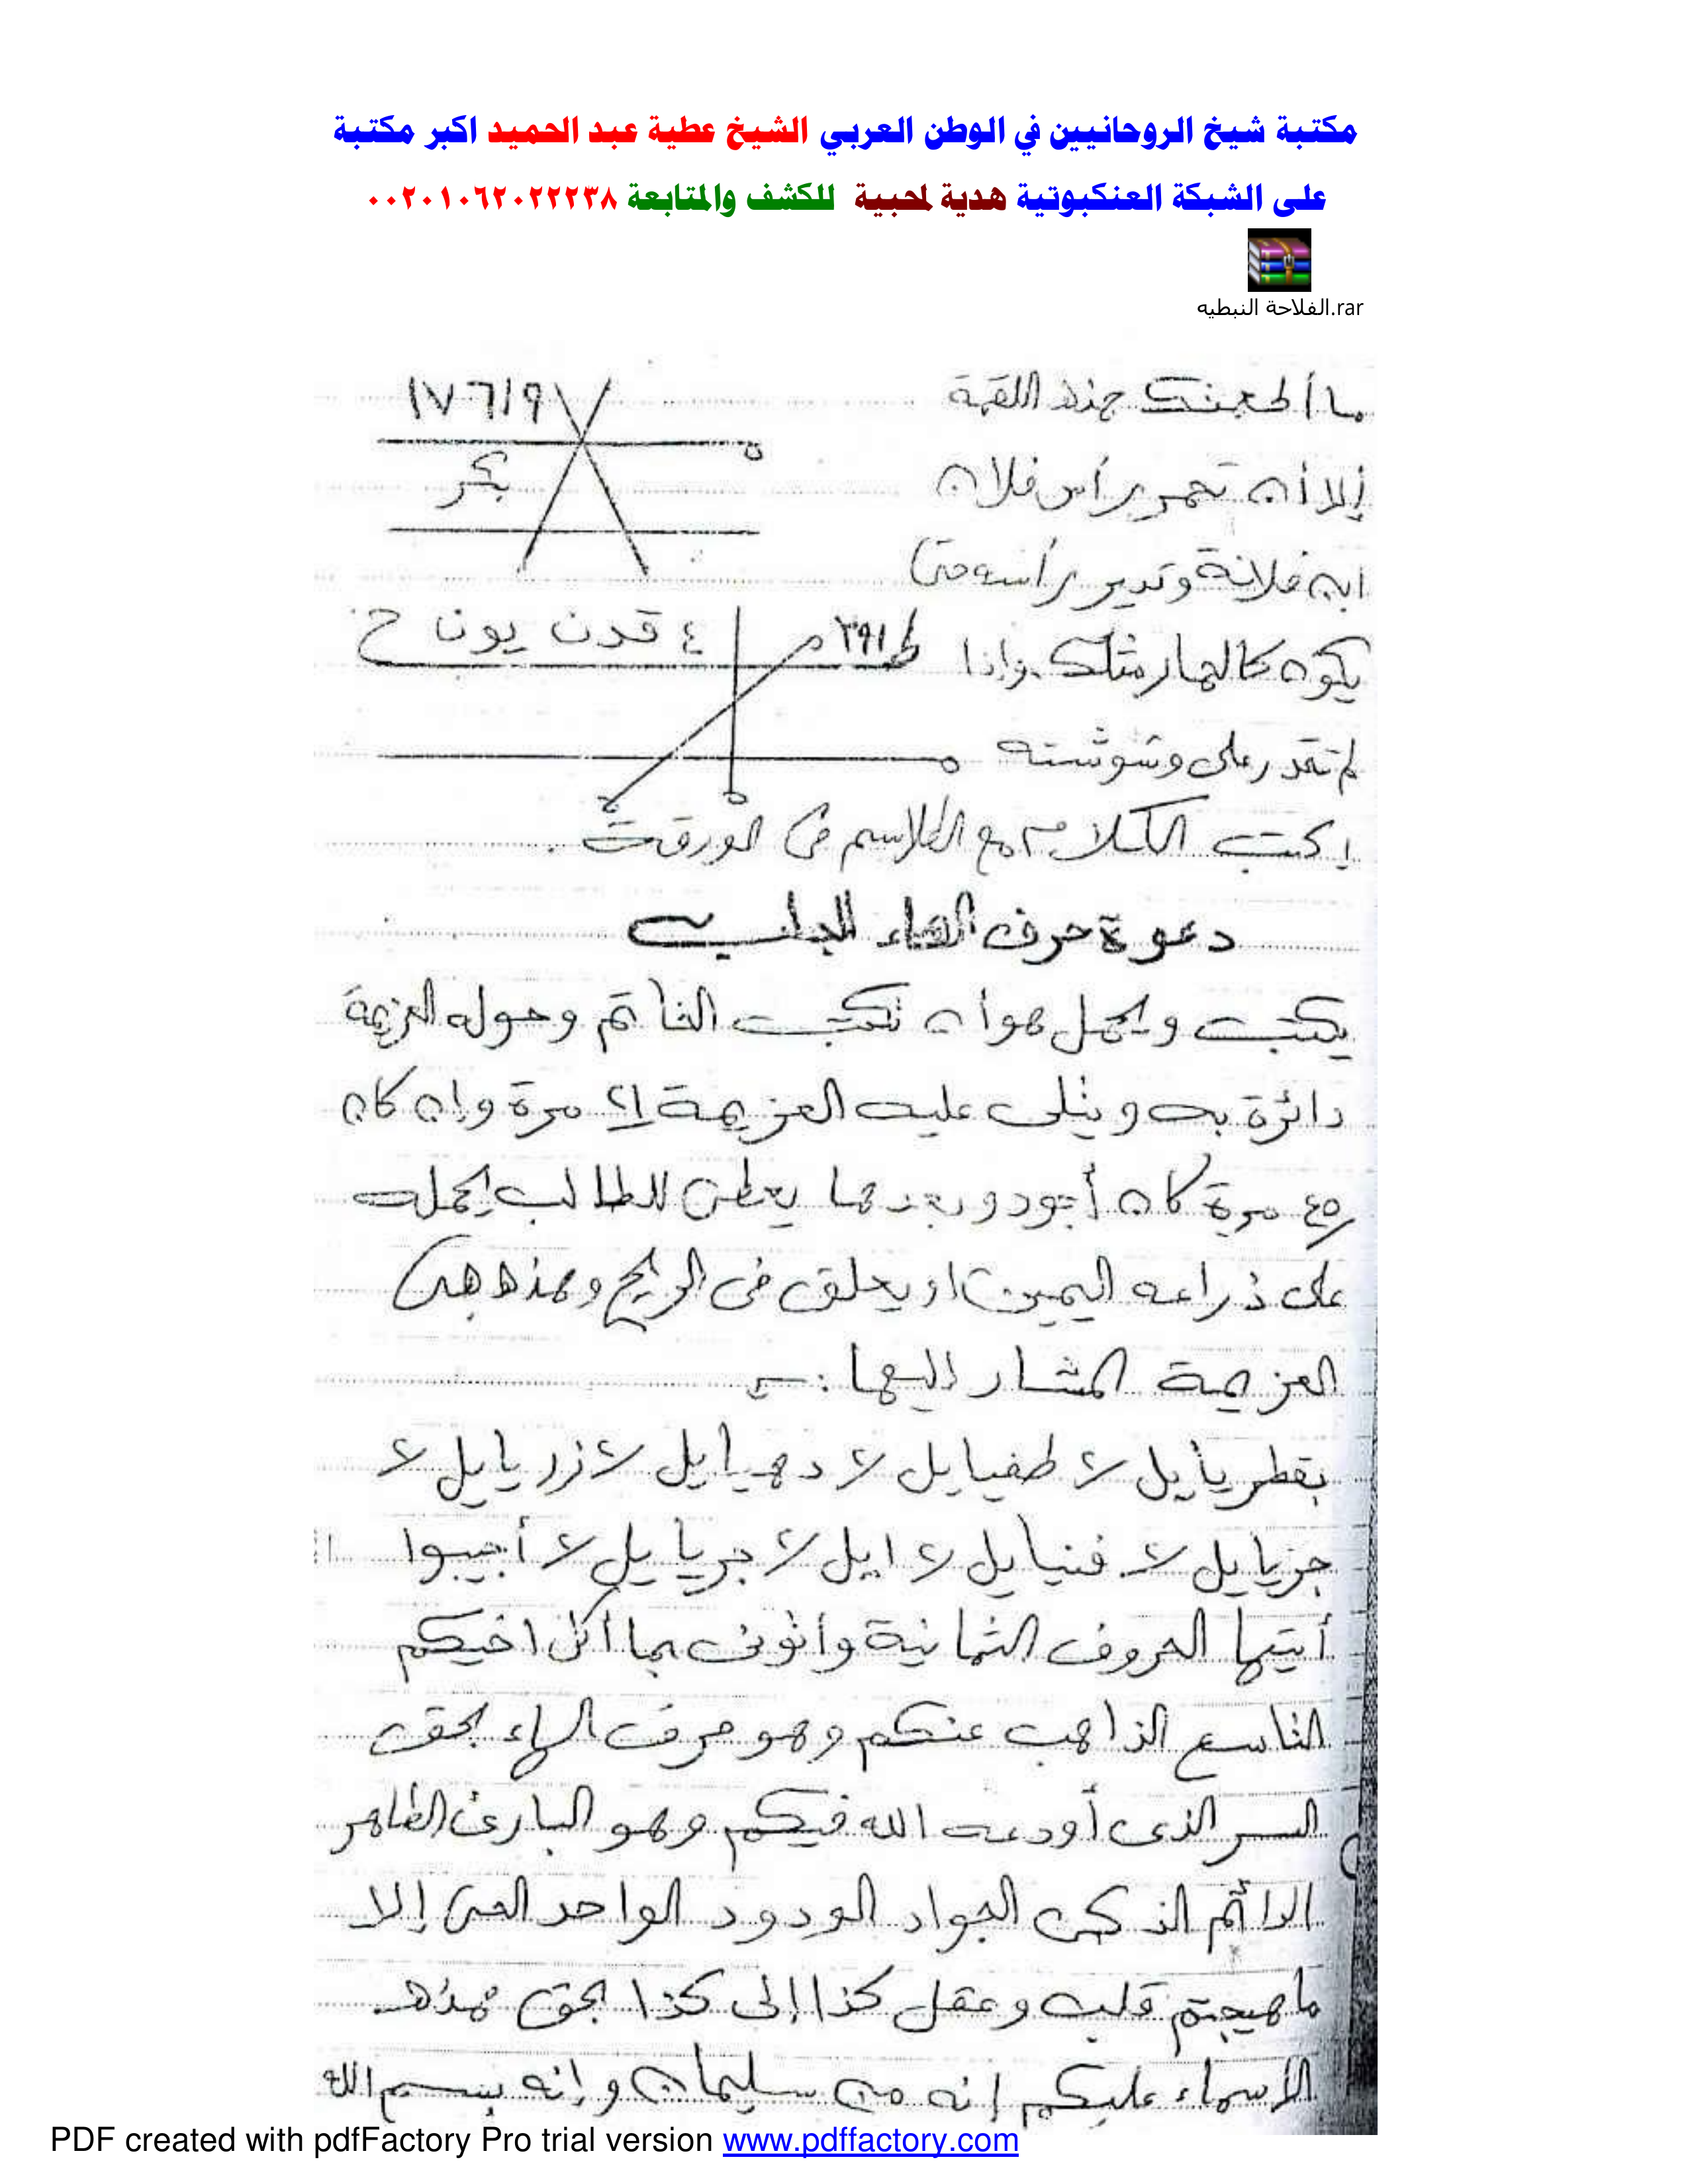 مكتبة شيخ الروحانيين في الوطن العربي الشيخ عطية عبد الحميد اكبر مكتبة
على الشبكة العنكبوتية هدية لمحبية للكشف والمتابعة ٠٠٢٠١٠٦٢٠٢٢٢٣٨
الفلاحة النبطيه.rar
ما أطعمتك هذه اللقمة
١٧٦١٩
إلا أن تحمر رأس فلان
بكر
ابن فلانة وتدير رأسه حتى
يكون كالحمار مثلك وإذا
٤ قدن يون ح
لم تقدر على وشوشته
اكتب الكلام مع الطلاسم فى الورقة .
دعوة حرف الهاء الجليب
يكتب ويحمل هو أن تكتب الخاتم وحوله العزيمة
دائرة به ويتلى عليه العزيمة ٢١ مرة وإن كان
٤٥ مرة كان أجود وبعدها يعطى للطالب يحمله
على ذراعه اليمين او يعلق فى الريح وهذه هى
العزيمة المشار إليها :-
بقطريأيل لا طفيايل لا دهيايل لا زريايل لا
جزيايل لا فنيايل لا ايل لا جريأيل لا أجيبوا
أيتها الحروف الثمانية وأتونى بما أكل اخيكم
التاسع الذاهب عنكم وهو حرف الهاء بحق
السر الذى أودعه الله فيكم وهو البارئ الظاهر
الدائم الذكى الجواد الودود الواحد الحى إلا
ما هيجتم قلب وعقل كذا إلى كذا بحق هذه
الأسماء عليكم إنه من سليمان وإنه بسم الله
PDF created with pdfFactory Pro trial version www.pdffactory.com